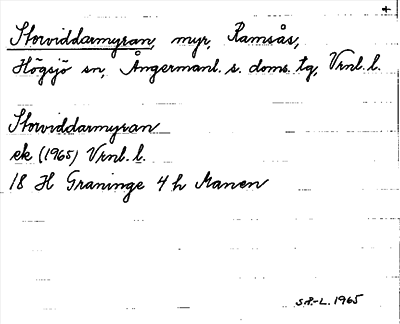 Storviddarmyran, myr, Ramsås,
Högsjö sn, Ångermanl. s. doms. tg, Vrnl. l.
Storviddarmyran
ek (1965) Vrnl. l.
18 H Graninge 4 h Manen
S.P.-L. 1965